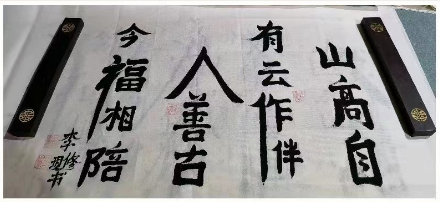 山高自
有云作伴
人善古
今福相陪
李修
书